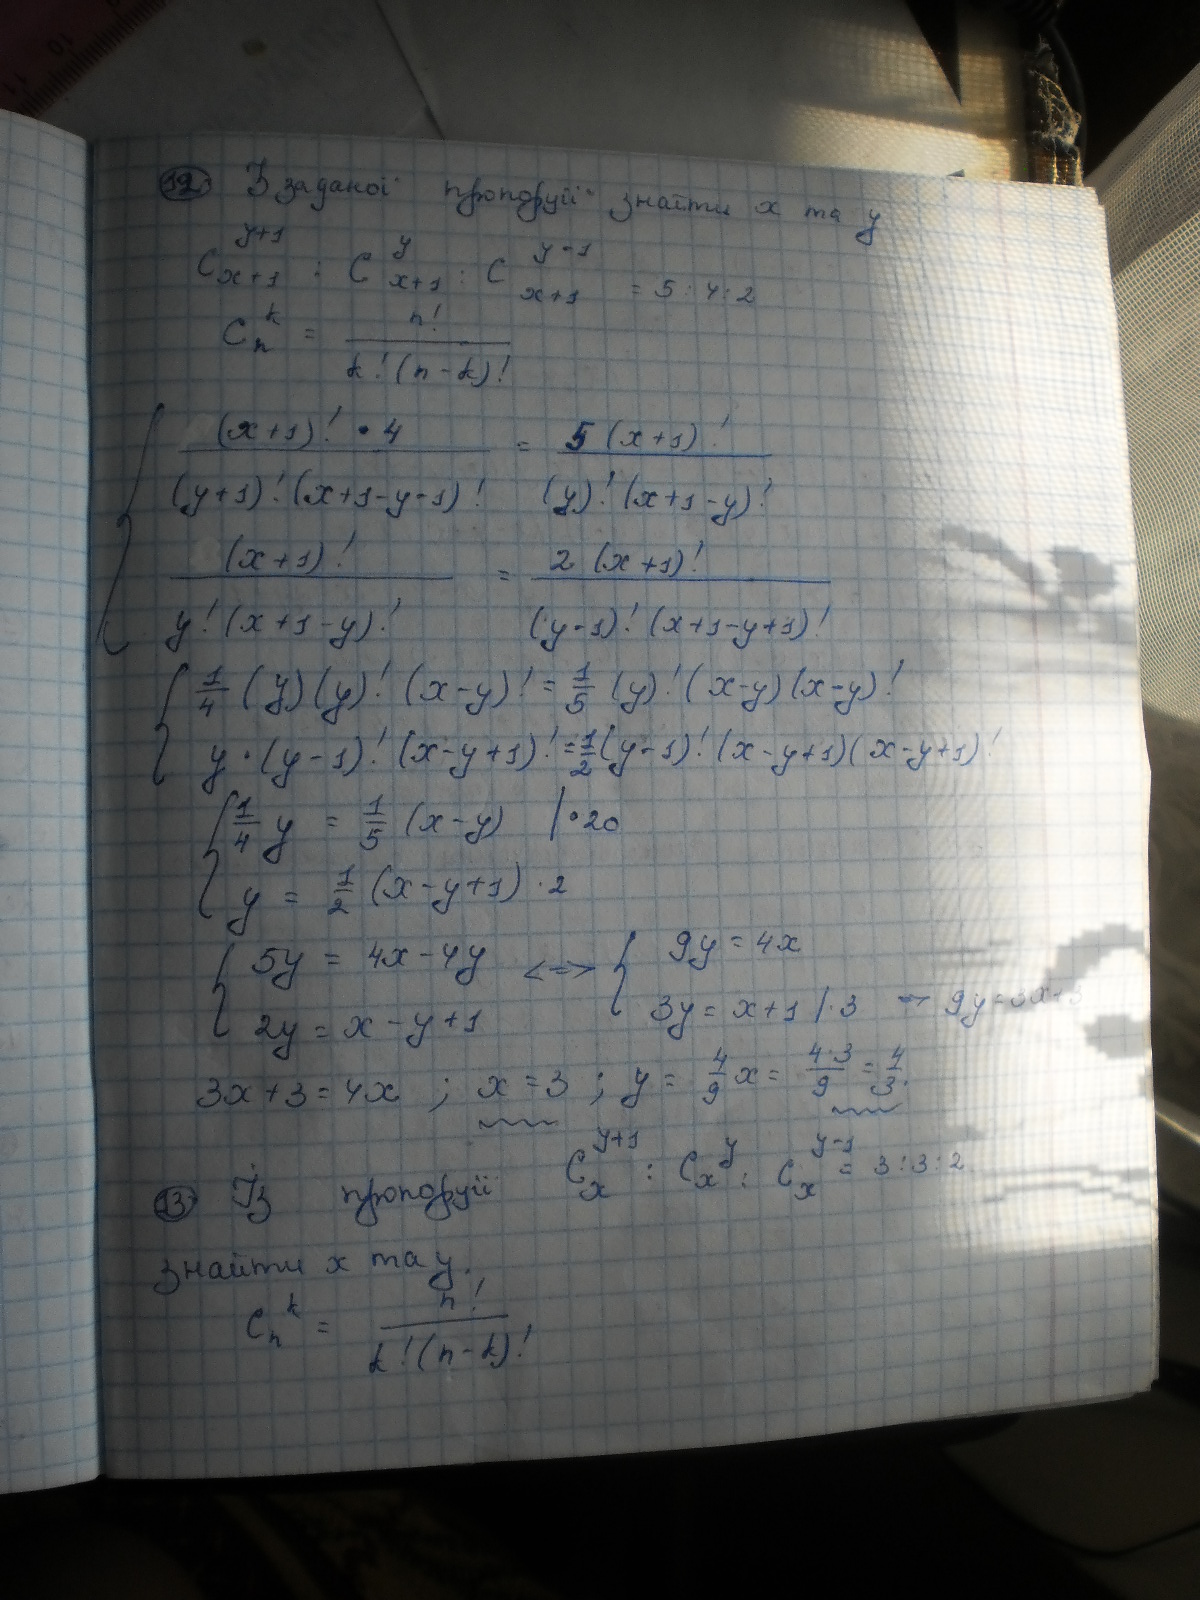 12. З заданої пропорції знайти x та y
C_{x+1}^{y+1} : C_{x+1}^{y} : C_{x+1}^{y-1} = 5:4:2
C_n^k = n! / k!(n-k)!
(x+1)!•4 / (y+1)!(x+1-y-1)! = 5(x+1)! / (y)!(x+1-y)!
(x+1)! / y!(x+1-y)! = 2(x+1)! / (y-1)!(x+1-y+1)!
1/4 (y)(y)!(x-y)! = 1/5 (y)!(x-y)(x-y)!
y•(y-1)!(x-y+1)! = 1/2 (y-1)!(x-y+1)(x-y+1)!
1/4 y = 1/5 (x-y) |•20
y = 1/2 (x-y+1) ·2
5y = 4x-4y <=> 9y = 4x
2y = x-y+1 3y = x+1 |·3 → 9y=3x+3
3x+3=4x ; x=3 ; y = 4/9 x = 4·3/9 = 4/3.
13. Із пропорції C_x^{y+1} : C_x^y : C_x^{y-1} = 3:3:2
знайти x та y.
C_n^k = n! / k!(n-k)!